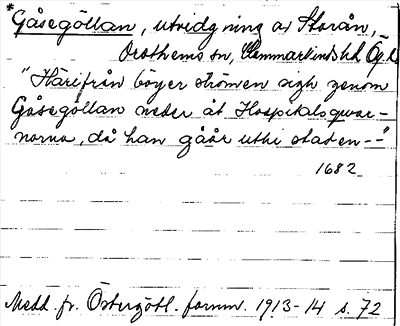 *Gåsegöllan, utvidgning av Storån,
Drothems sn, Hammarkinds hd Ög.l.
"Härifrån böyer strömen sigh genom
Gåsegöllan neder åt Hospitalsqwar-
norna, då han gåår uthi staden--"
1682
Medd. fr. Östergötl. fornm. 1913-14 s. 72